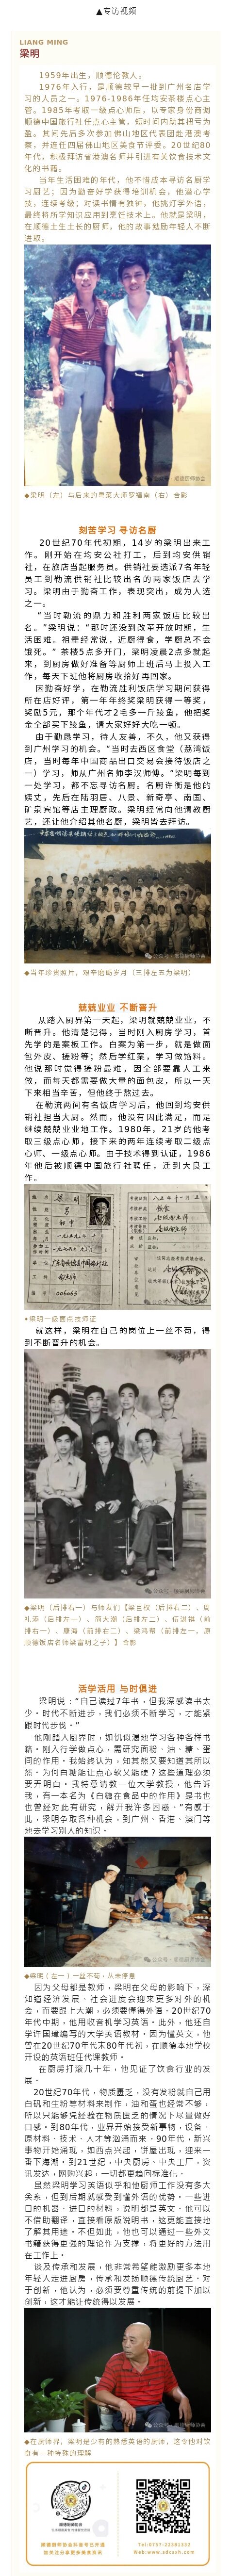 ▲专访视频
LIANG MING
梁明
1959年出生，顺德伦教人。
1976年入行，是顺德较早一批到广州名店学
习的人员之一。1976-1986年任均安茶楼点心主
管。1985年考取一级点心师后，以专家身份商调
顺德中国旅行社任点心主管，短时间内助其扭亏为
盈。其间先后多次参加佛山地区代表团赴港澳考
察，并连任四届佛山地区美食节评委。20世纪80
年代，积极拜访省港澳名师并引进有关饮食技术文
化的书籍。
当年生活困难的年代，他不惜成本寻访名厨学
习厨艺；因为勤奋好学获得培训机会，他潜心学
技，连续考级；对读书情有独钟，他挑灯学外语，
最终将所学知识应用到烹饪技术上。他就是梁明，
在顺德土生土长的厨师，他的故事勉励年轻人不断
进取。
公众号·顺德厨师协会
◆梁明（左）与后来的粤菜大师罗福南（右）合影
刻苦学习 寻访名厨
20世纪70年代初期，14岁的梁明出来工
作。刚开始在均安公社打工，后到均安供销
社，在旅店当起服务员。供销社要选派7名年轻
员工到勒流供销社比较出名的两家饭店去学
习。梁明由于勤奋工作，表现突出，成为人选
之一。
“当时勒流的鼎力和胜利两家饭店比较出
名。”梁明说：“那时还没到改革开放时期，生
活困难。祖辈经常说，近厨得食，学厨总不会
饿死。” 茶楼5点多开门，梁明凌晨2点多就起
来，到厨房做好准备等厨师上班后马上投入工
作，每天下班他将厨房收拾好再回家。
因勤奋好学，在勒流胜利饭店学习期间获得
所在店好评，第一年年终奖梁明获得一等奖，
奖励5元，那个年代才2毛多一斤鲮鱼，他把奖
金全部买下鲮鱼，请大家好好大吃一顿。
由于勤恳学习，待人友善，不久，他又获得
到广州学习的机会。“当时去西区食堂（荔湾饭
店，当时每年中国商品出口交易会接待饭店之
一）学习，师从广州名师李汉师傅。”梁明每到
一处学习，都不忘寻访名厨。名厨许衡是他的
姨丈，先后在陆羽居、八景、新奇亭、南国、
矿泉宾馆等店主理厨政。梁明经常向他请教厨
艺，还让他介绍其他名厨，梁明皆去拜访。
公众号·顺德厨师协会
◆当年珍贵照片，艰辛磨砺岁月（三排左五为梁明）
兢兢业业 不断晋升
从踏入厨界第一天起，梁明就兢兢业业，不
断晋升。他清楚记得，当时刚入厨房学习，首
先学的是案板工作。白案为第一步，就是做面
包外皮、搓粉等；然后学红案，学习做馅料。
他说那时觉得搓粉最难，因全部要靠人工来
做，而每天都需要做大量的面包皮，所以一天
下来相当辛苦，但他终于熬过去。
在勒流两间有名饭店学习后，他回到均安供
销社担当大厨。然而，他没有因此满足，而是
继续兢兢业业地工作。1980年，21岁的他考
取三级点心师，接下来的两年连续考取二级点
心师、一级点心师。由于技术得到认证，1986
年他后被顺德中国旅行社聘任，迁到大良工
作。
公众号·顺德厨师协会
•梁明一级面点技师证
就这样，梁明在自己的岗位上一丝不苟，得
到不断晋升的机会。
公众号·顺德厨师协会
◆梁明（后排右一）与师友们【梁巨权（后排右二）、周
礼添（后排左一）、周大潮（后排左二）、伍湛祺（前
排右一）、康海（前排右二）、梁鸿帮（前排左一，原
顺德饭店名师梁富明之子）】合影
活学活用 与时俱进
梁明说：“自己读过7年书，但我深感读书太
少。时代不断进步，我们必须不断学习，才能紧
跟时代步伐。”
他刚踏入厨界时，如饥似渴地学习各种各样书
籍。刚入行学做点心，需研究面粉、油、糖、蛋
间的作用。我始终认为，知其然又要知道其所以
然。为何白糖能让点心软又能硬？这些道理必须
要弄明白。我特意请教一位大学教授，他告诉
我，有一本名为《白糖在食品中的作用》是书也
也曾经对此有研究，解开我许多困惑。“有感于
此，梁明争取各种机会，到广州、香港、澳门等
地去学习别人的知识。
公众号·顺德厨师协会
◆梁明（左一）一丝不苟，从未停息
因为父母都是教师，梁明在父母的影响下，深
知道经济发展、社会进度会迎来更多对外的机
会，而要跟上大潮，必须要懂得外语。20世纪70
年代中期，他用收音机学习英语。此外，他还自
学许国璋编写的大学英语教材。因为懂英文，他
曾在20世纪70年代末80年代初，在顺德本地学校
开设的英语班任代课教师。
在厨房打滚几十年，他见证了饮食行业的发
展。
20世纪70年代，物质匮乏，没有发粉就自己用
白矾和生粉等材料来制作，油和蛋也经常不够，
所以只能够凭经验在物质匮乏的情况下尽量做好
口感。到80年代，业界开始接受新事物，设备、
原材料、技术、人才等汹涌而来。90年代，新兴
事物开始涌现，如西点兴起，饼屋出现，迎来一
番下海潮。到21世纪，中央厨房、中央工厂，资
讯发达，网购兴起，一切都更趋向标准化。
虽然梁明学习英语似乎和他厨师工作没有多大
关系，但到后期就感受到懂外语的优势。一些进
口的机器，进口的材料，说明都是英文，他可以
不借助翻译，直接看原版说明书，这更能直接地
了解其用途。不但如此，他也可以通过一些外文
书籍获得更强的理论作为支撑，将更好的方法用
在工作上。
谈及传承和发展，他非常希望能激励更多本地
年轻人走进厨房，传承和发扬顺德传统厨艺。对
于创新，他认为，必须要尊重传统的前提下加以
创新，这才能让传统得以发展。
公众号·顺德厨师协会
◆在厨师界，梁明是少有的熟悉英语的厨师，这令他对饮
食有一种特殊的理解
Tel:0757-22381332